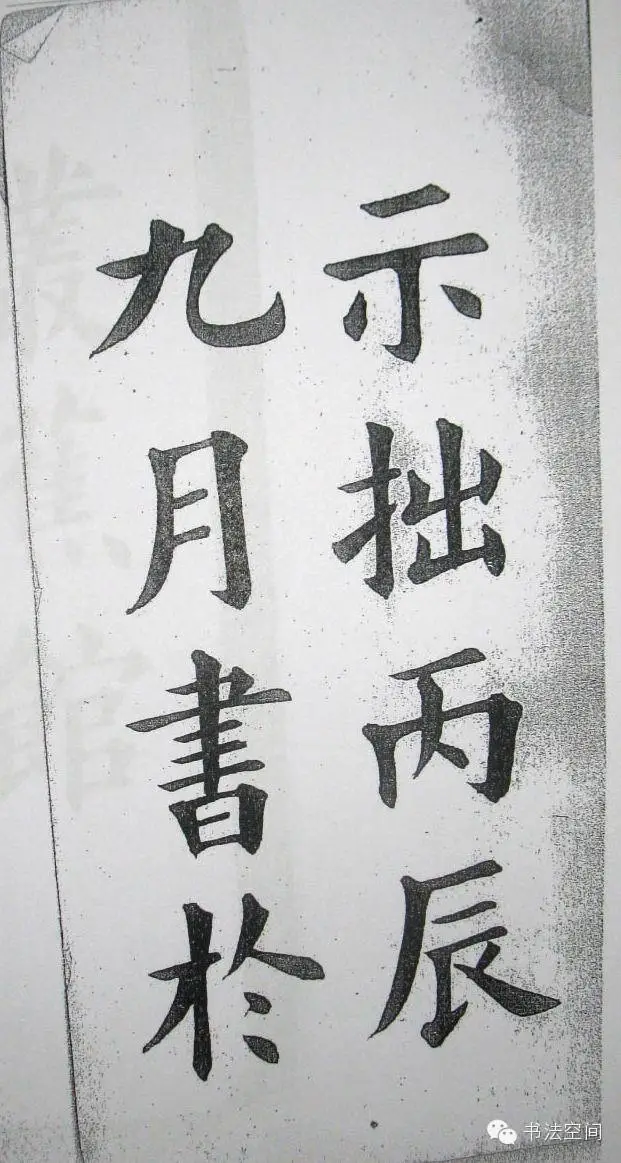 示拙丙辰
九月書於
书法空间